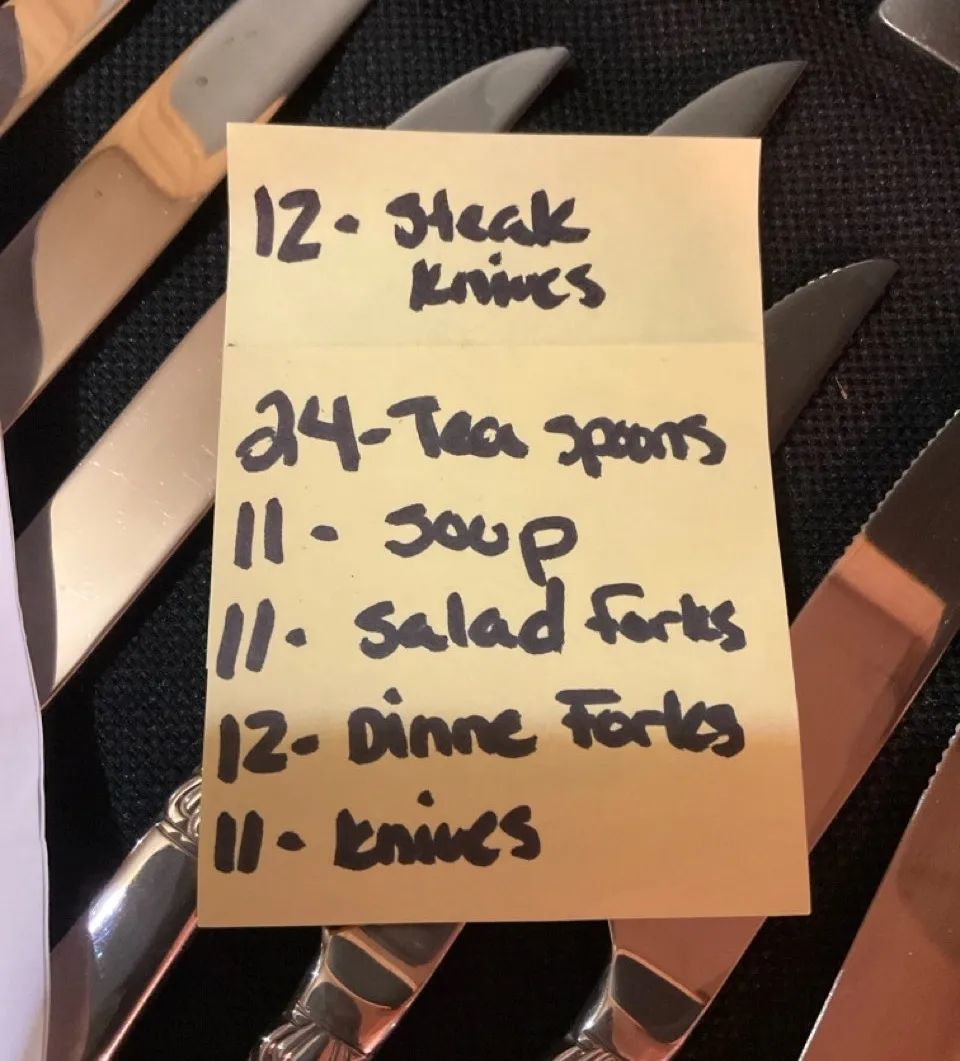 12- Steak
knives
24- Tea spoons
11- Soup
11- Salad forks
12- Dinne Forks
11- knives